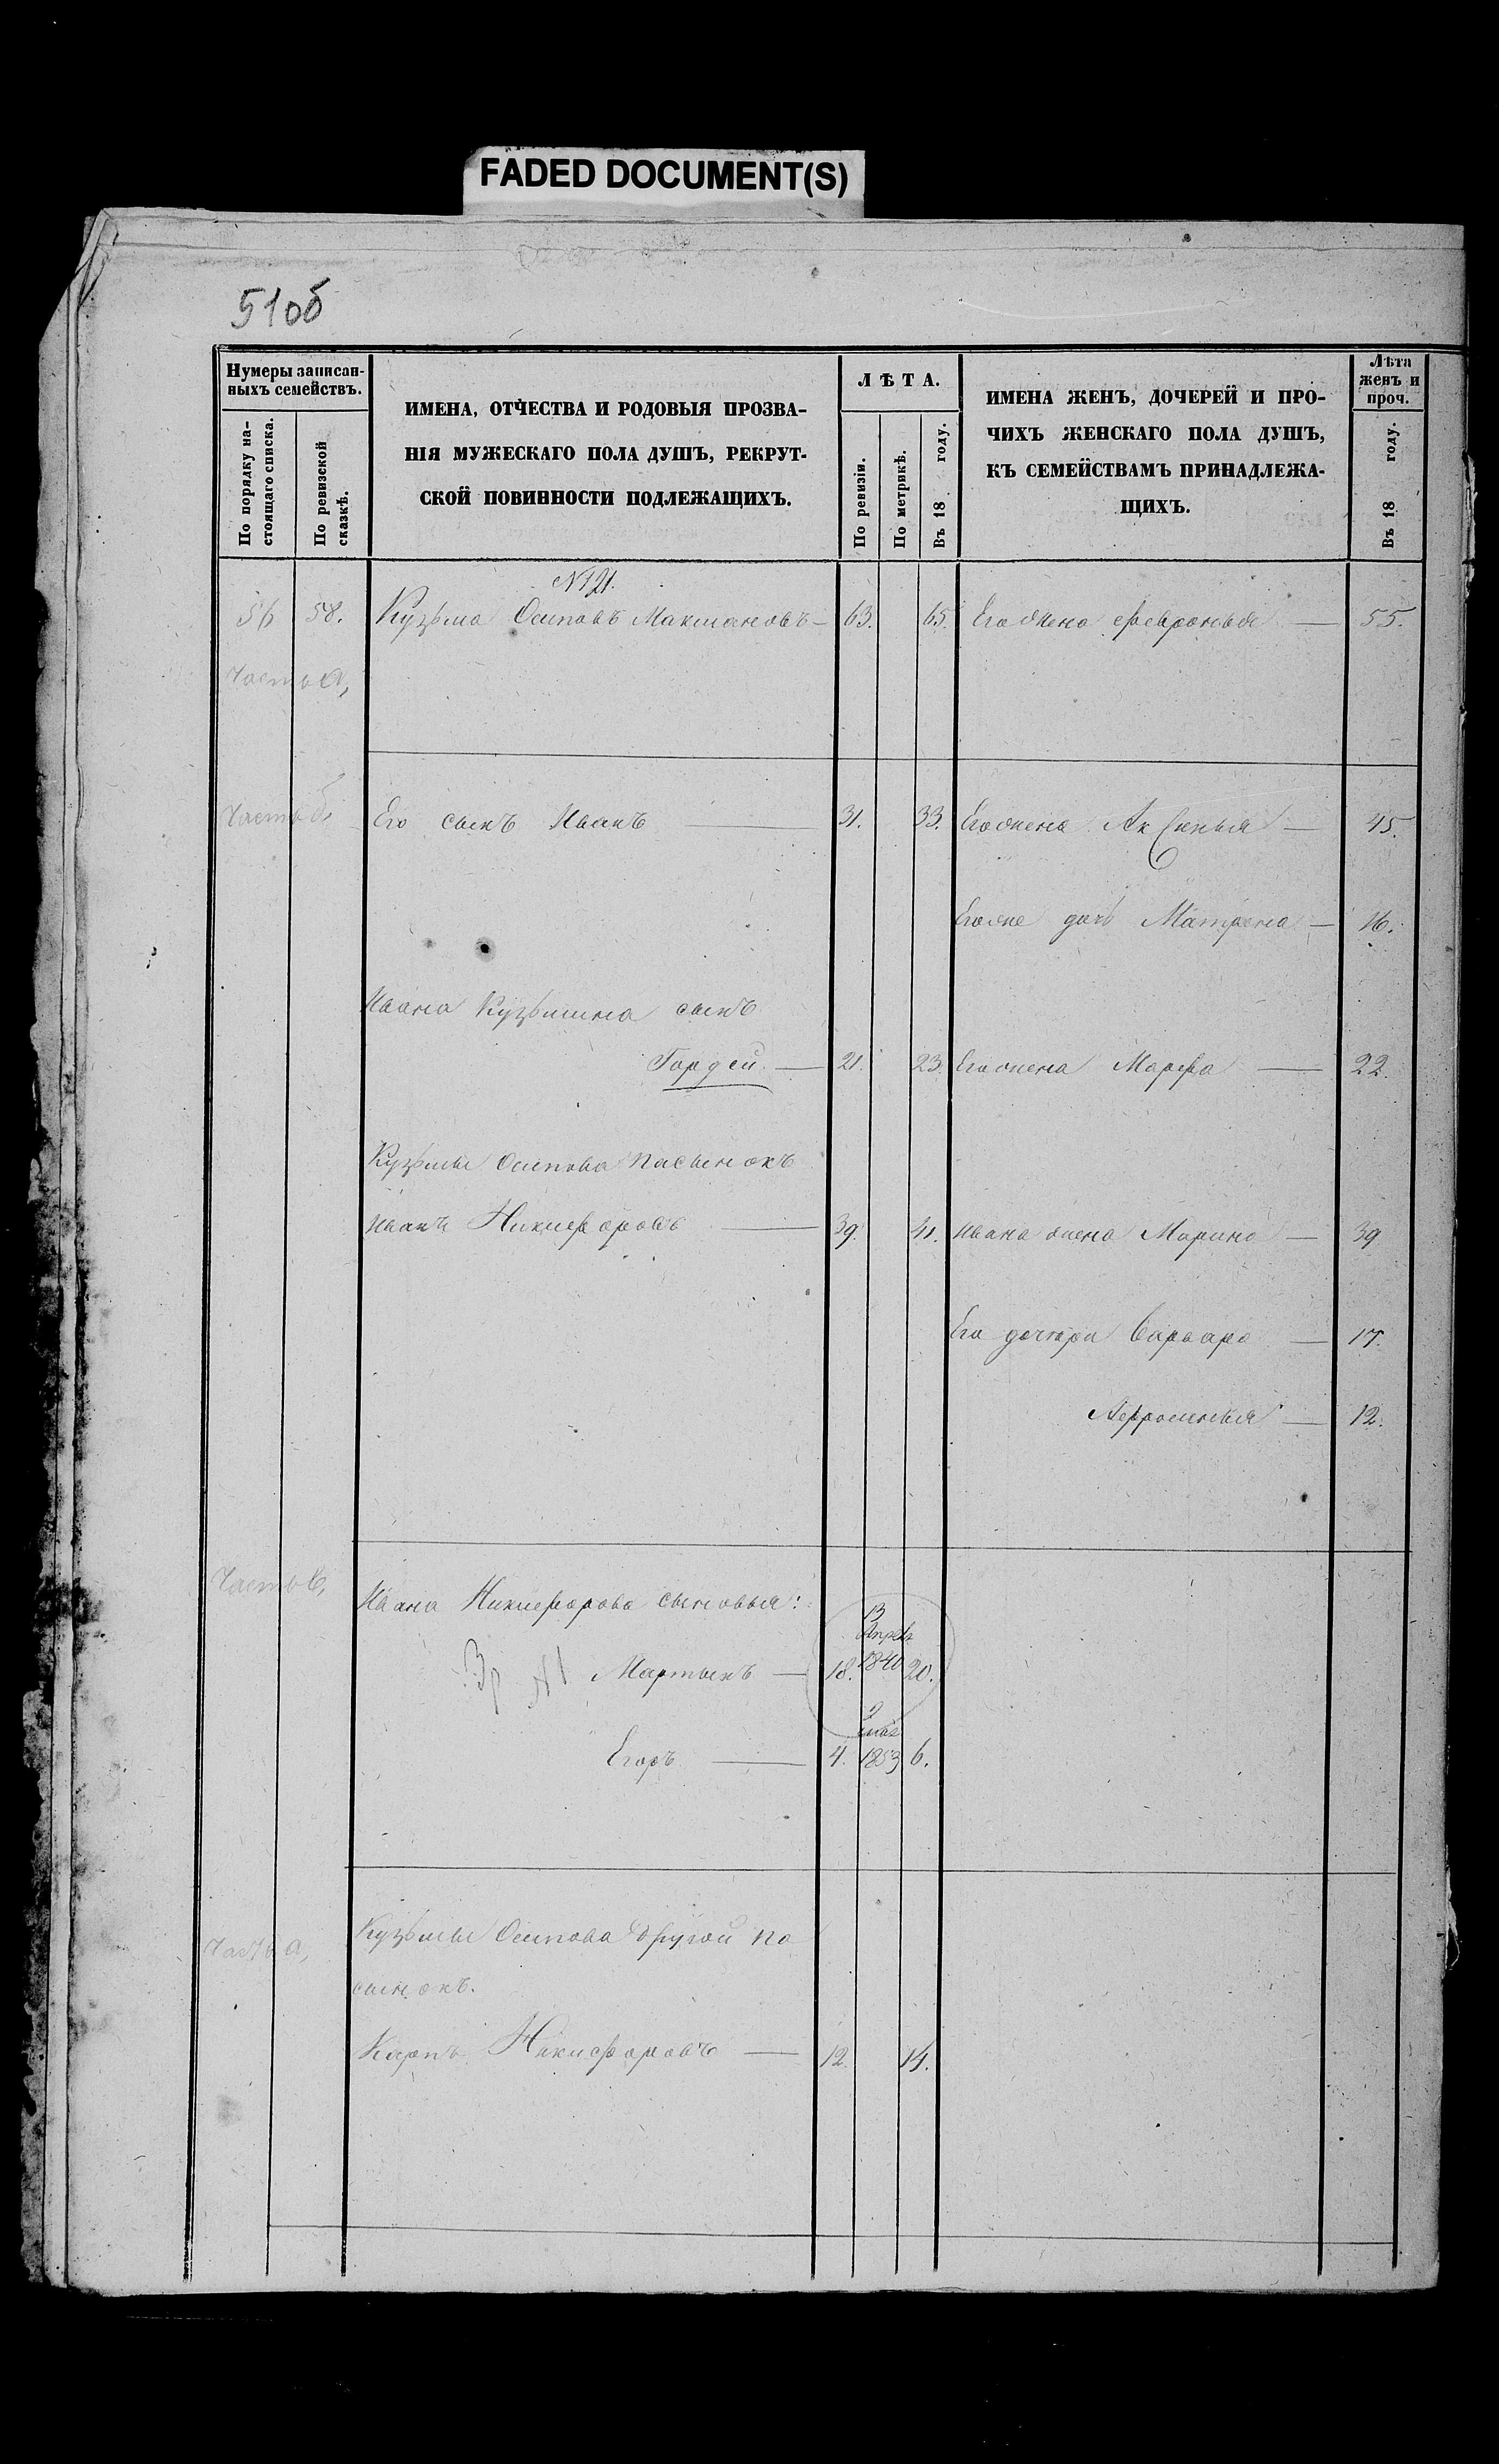 FADED DOCUMENT(S)
51об
Нумеры записан-
ныхъ семействъ.
По порядку на-
стоящаго списка.
По ревизской
сказкѣ.
ИМЕНА, ОТЧЕСТВА И РОДОВЫЯ ПРОЗВА-
НІЯ МУЖЕСКАГО ПОЛА ДУШЪ, РЕКРУТ-
СКОЙ ПОВИННОСТИ ПОДЛЕЖАЩИХЪ.
ЛѢТА.
По ревизіи.
По метрикѣ.
Въ 18 году.
ИМЕНА ЖЕНЪ, ДОЧЕРЕЙ И ПРО-
ЧИХЪ ЖЕНСКАГО ПОЛА ДУШЪ,
КЪ СЕМЕЙСТВАМЪ ПРИНАДЛЕЖА-
ЩИХЪ.
Лѣта
женъ и
проч.
Въ 18 году.
N 121.
56 58. Кузьма Осиповъ Макмановъ — 63. 65. Его жена Февронья — 55.
Часть а,
Часть б, Его сынъ Иванъ — 31. 33. Его жена Аксинья — 45.
Его же дочь Матрена — 16.
Ивана Кузьмина сынъ
Гордей — 21. 23. Его жена Марфа — 22.
Кузьмы Осипова пасынокъ
Иванъ Никифоровъ — 39. 41. Ивана жена Марина — 39
Его дочери Варвара — 17.
Афросинья — 12.
Часть в, Ивана Никифорова сыновья:
13
Апрѣл
Зр N1 Мартынъ — 18. 1840 20.
Егоръ — 4. 1853 6.
Часть а, Кузьмы Осипова другой па
сынокъ.
Карпъ Никифоровъ — 12. 14.